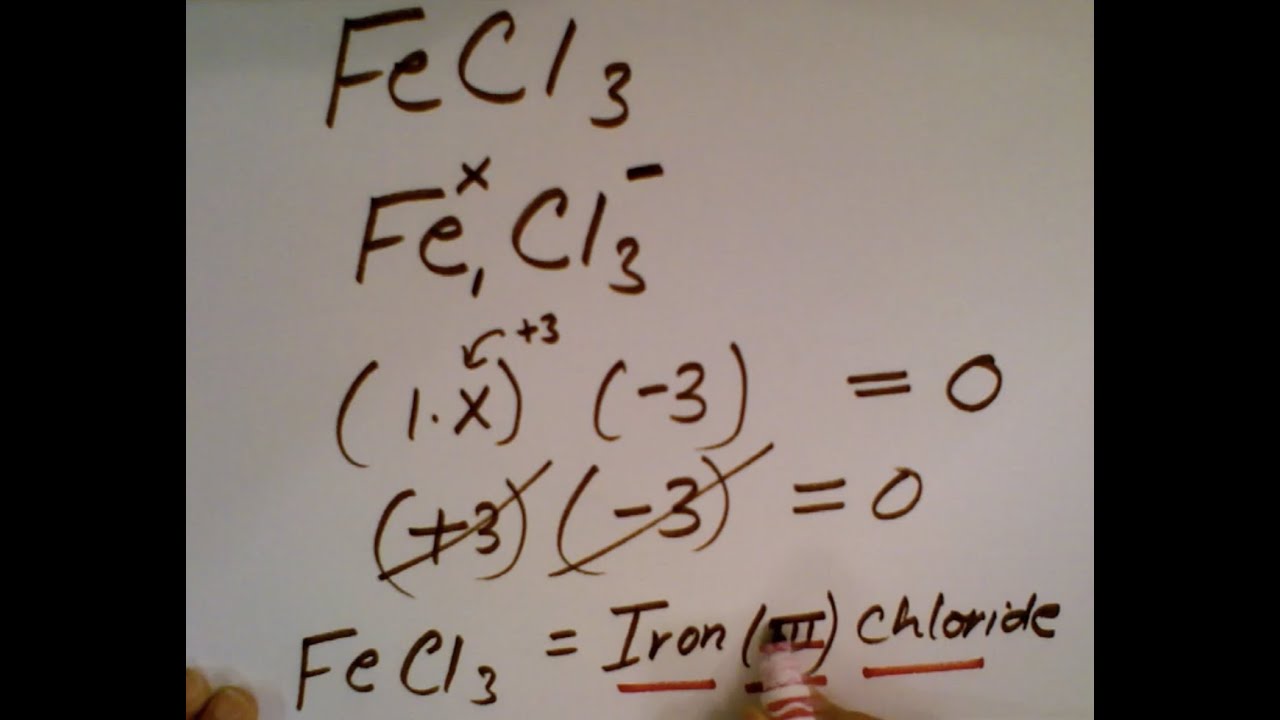 FeCl₃
Feˣ₁Cl₃⁻
(1·X)⁺³ (-3) = 0
(+3)(-3) = 0
FeCl₃ = Iron (III) Chloride